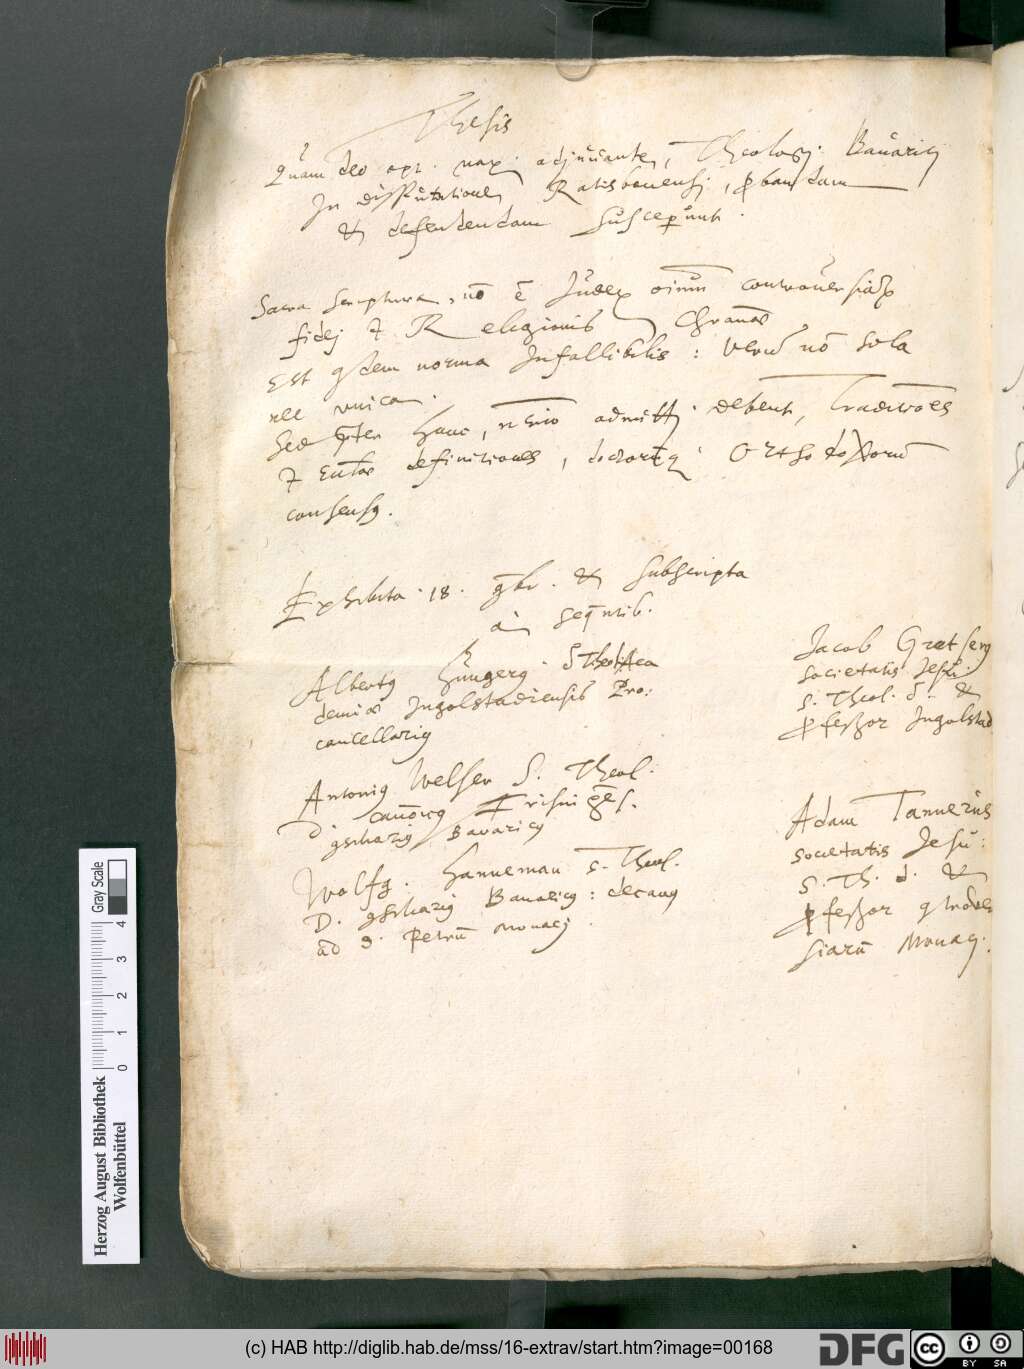 Thesis
Quam deo opt. max. adjuvante, Theologi Bavarici
In disputatione Ratisbonensi, probandam
et defendendam susceperunt.
Sacra Scriptura, nō ē Iudex oīum controversiarū
fidei et Religionis Chrānae
Est qdem norma Infallibilis: Verū nō sola
nec unica.
Sed pter hanc, nrio admitti debent, Traditioēs
et Eccliae definitiones, doctorūq Orthodoxorū
consensq.
Exhibita 18. 9br. et subscripta
à seqntib.
Albertq Hungerq S Theol Aca
demiae Ingolstadiensis Pro:
cancellariq
Antoniq Welser S. Theol.
D canōicq Frisingēs.
qsiliariq Bavaricq
Wolfg. Hanneman S. Theol.
D. qsiliariq Bavaricq: decanq
ad S. Petrū Monacj
Jacob Gretserq
Societatis Jesu
S. Theol. D. et
pfessor Ingolstad
Adam Tannerus
Societatis Jesu:
S. Th. D. et
pfessor qtrove
siarū Monacj.
Herzog August Bibliothek
Wolfenbüttel
0 1 2 3 4
Gray Scale
(c) HAB http://diglib.hab.de/mss/16-extrav/start.htm?image=00168
DFG
cc BY SA